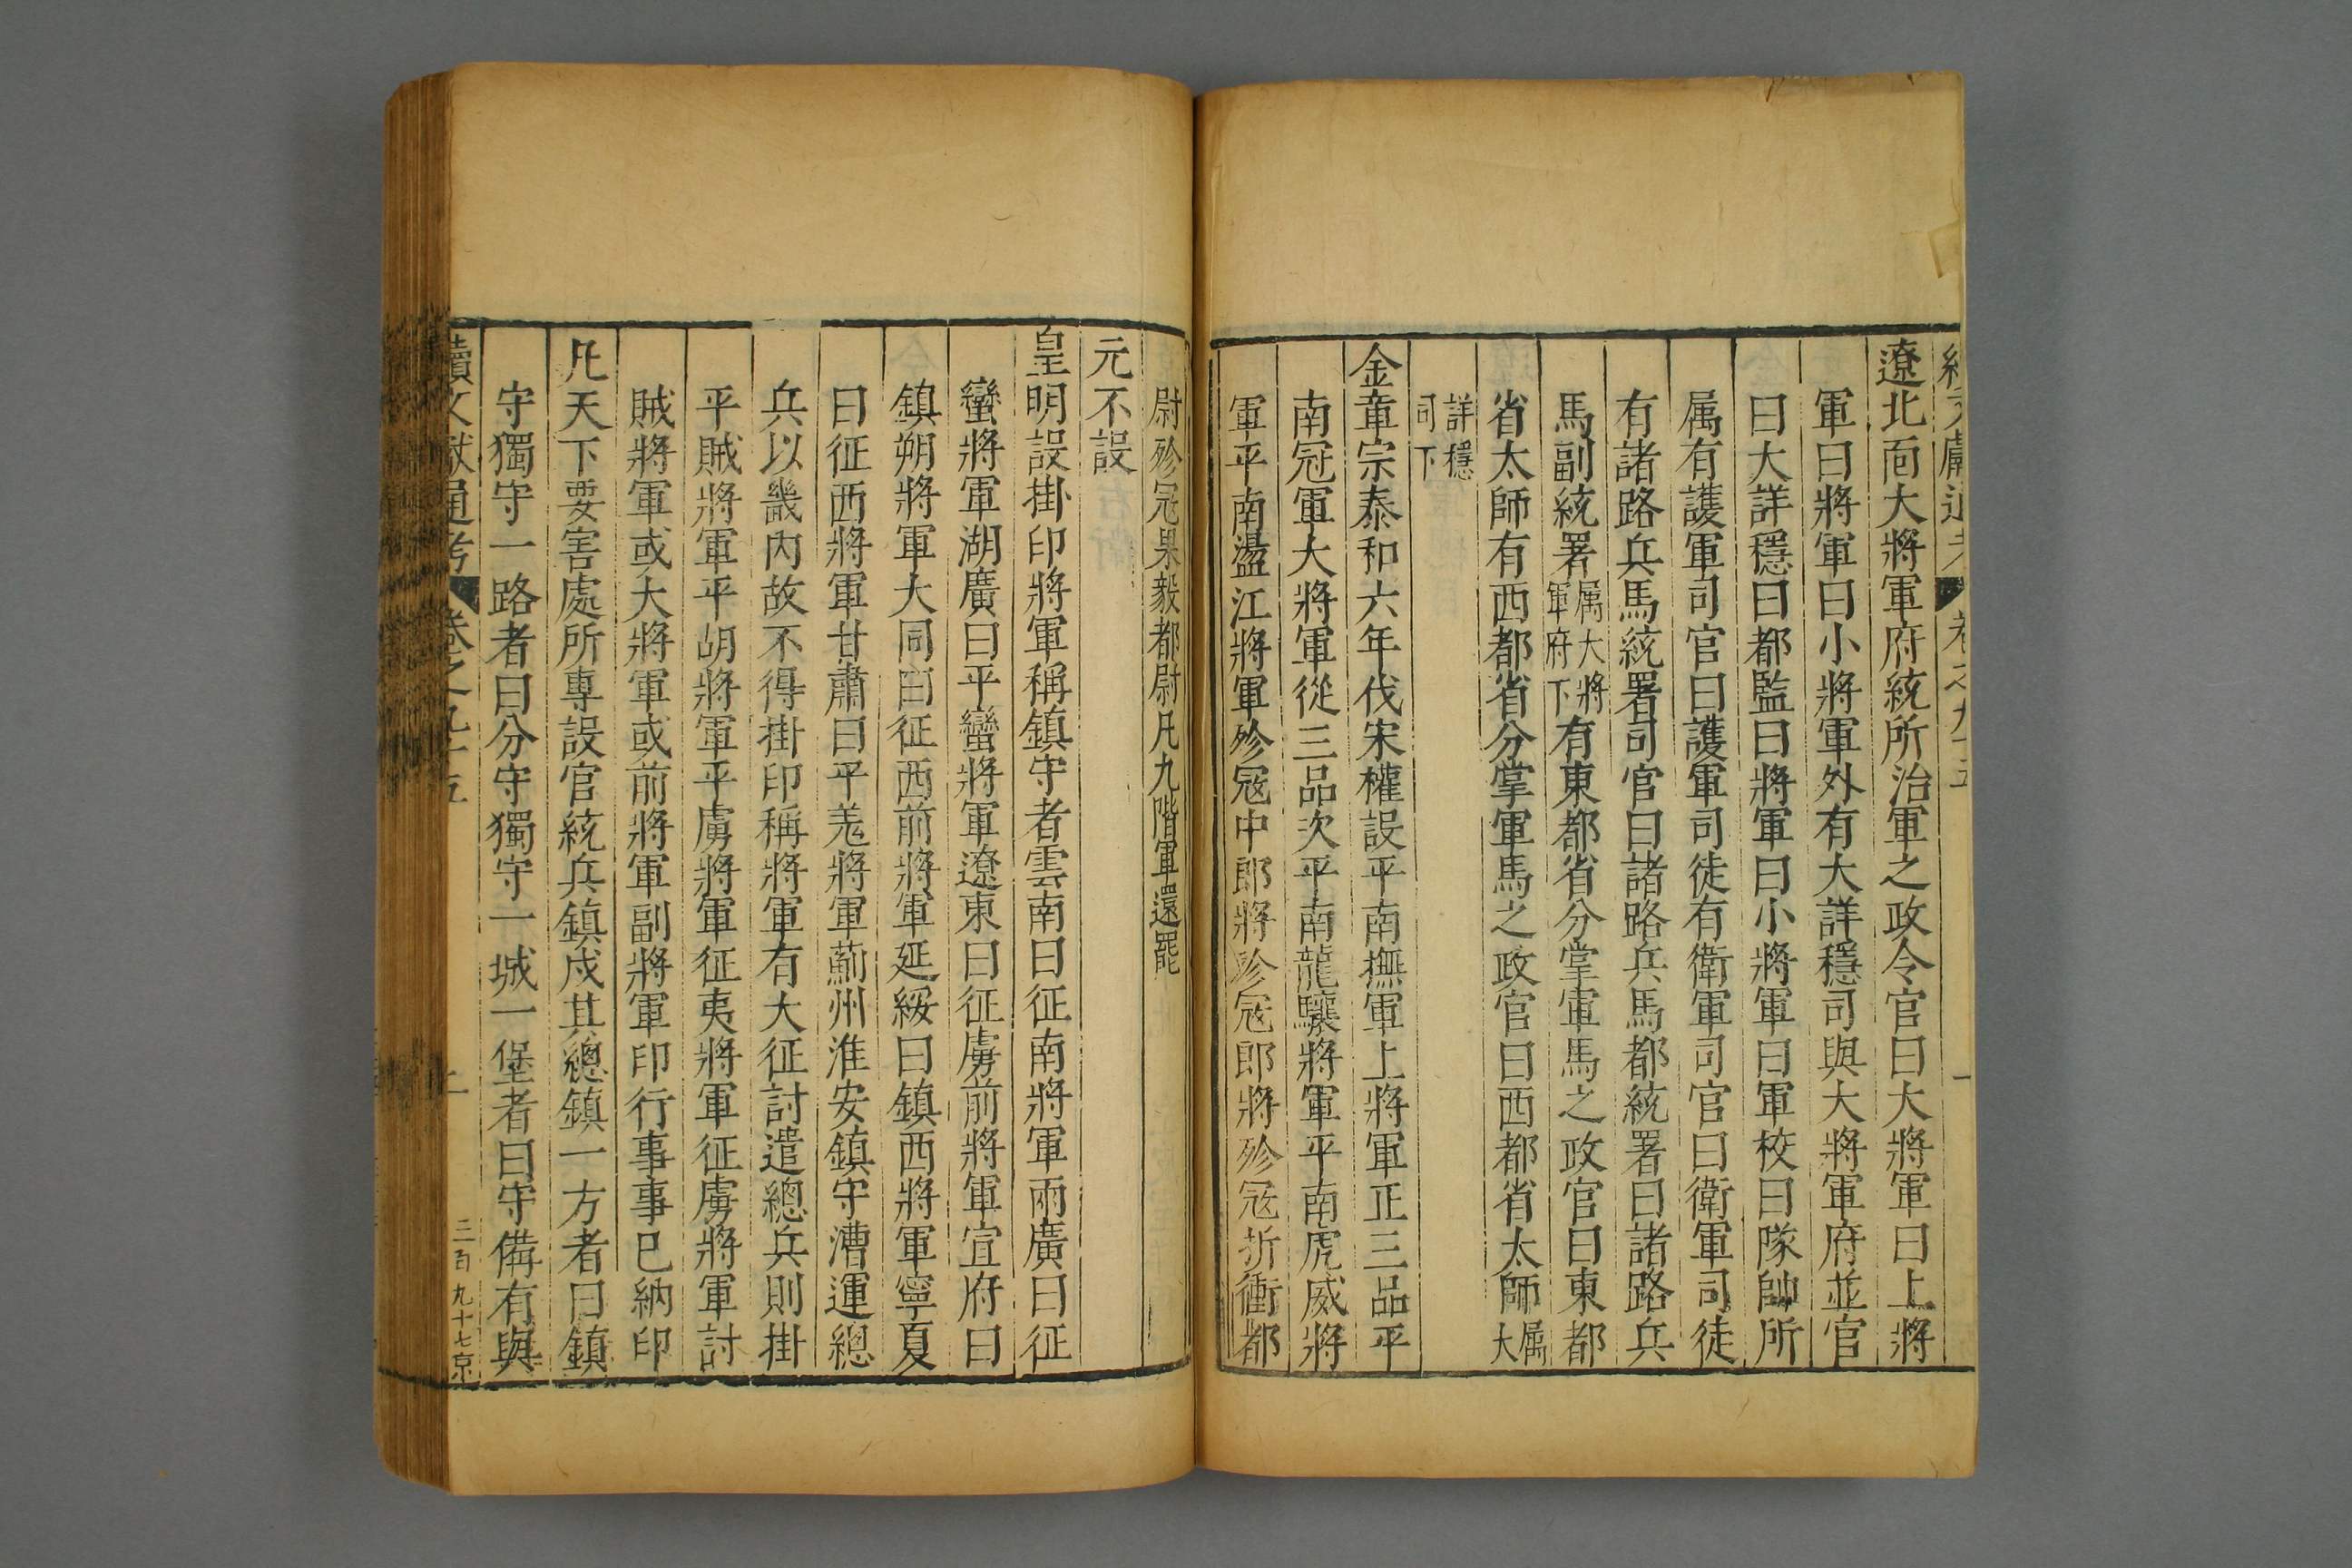 遼北面大將軍府統所治軍之政令官曰大將軍曰上將
軍曰將軍曰小將軍外有大詳穩司與大將軍府並官
曰大詳穩曰都監曰將軍曰小將軍曰軍校曰隊帥所
属有護軍司官曰護軍司徒有衛軍司官曰衛軍司徒
有諸路兵馬統署司官曰諸路兵馬都統署曰諸路兵
馬副統署属大將軍府下有東都省分掌軍馬之政官曰東都
省太師有西都省分掌軍馬之政官曰西都省太師属大
詳穩司下
金章宗泰和六年伐宋權設平南撫軍上將軍正三品平
南冠軍大將軍從三品次平南龍驤將軍平南虎威將
軍平南盪江將軍殄冦中郎將殄冦郎將殄冦折衝都
尉殄冦果毅都尉凡九階軍還罷
元不設
皇明設掛印將軍稱鎮守者雲南曰征南將軍兩廣曰征
蠻將軍湖廣曰平蠻將軍遼東曰征虜前將軍宣府曰
鎮朔將軍大同曰征西前將軍延綏曰鎮西將軍寧夏
曰征西將軍甘肅曰平羗將軍薊州淮安鎮守漕運總
兵以畿内故不得掛印稱將軍有大征討遣總兵則掛
平賊將軍平胡將軍平虜將軍征夷將軍征虜將軍討
賊將軍或大將軍或前將軍副將軍印行事事已納印
凡天下要害處所專設官統兵鎮戍其總鎮一方者曰鎮
守獨守一路者曰分守獨守一城一堡者曰守備有與
續文獻通考 卷之九十五
二百九十七京